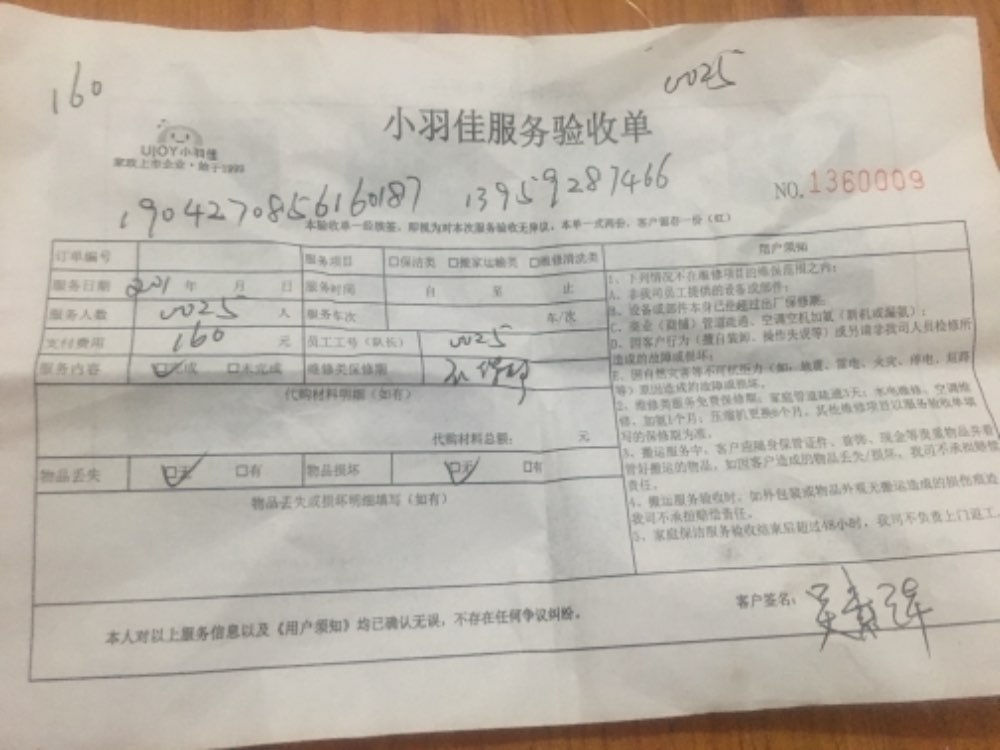 160
0025
小羽佳服务验收单
UJOY小羽佳
家政上市企业·始于1999
1904270856160187 13959287466
NO. 1360009
本验收单一经核签，即视为对本次服务验收无异议，本单一式两份，客户留存一份（红）
订单编号 服务项目 □保洁类 □搬家运输类 □维修清洗类
服务日期 年 月 日 服务时间 自 至 止
服务人数 0025 人 服务车次 车/次
支付费用 160 元 员工工号（队长） 0025
服务内容 □完成 □未完成 维修类保修期
代购材料明细（如有）
代购材料总额： 元
物品丢失 □无 □有 物品损坏 □无 □有
物品丢失或损坏明细填写（如有）
用户须知
1、下列情况不在维修项目的维保范围之内：
A、非我司员工提供的设备或部件；
B、设备或部件本身已经超过出厂保修期；
C、商业（商铺）管道疏通、空调空机加氨（新机或漏氨）；
D、因客户行为（擅自装卸、操作失误等）或另请非我司人员检修所
造成的故障或损坏；
E、因自然灾害等不可抗拒力（如：地震、雷电、火灾、停电、短路
等）原因造成的故障或损坏。
2、维修类服务免费保修期：家庭管道疏通3天；水电维修、空调维
修、加氨1个月；压缩机更换6个月。其他维修项目以服务验收单填
写的保修期为准。
3、搬运服务中，客户应随身保管证件、首饰、现金等贵重物品并看
管好搬运的物品，如因客户造成的物品丢失/损坏，我司不承担赔偿
责任。
4、搬运服务验收时，如外包装或物品外观无搬运造成的损伤痕迹
我司不承担赔偿责任。
5、家庭保洁服务验收结束后超过48小时，我司不负责上门返工。
客户签名：
本人对以上服务信息以及《用户须知》均已确认无误，不存在任何争议纠纷。